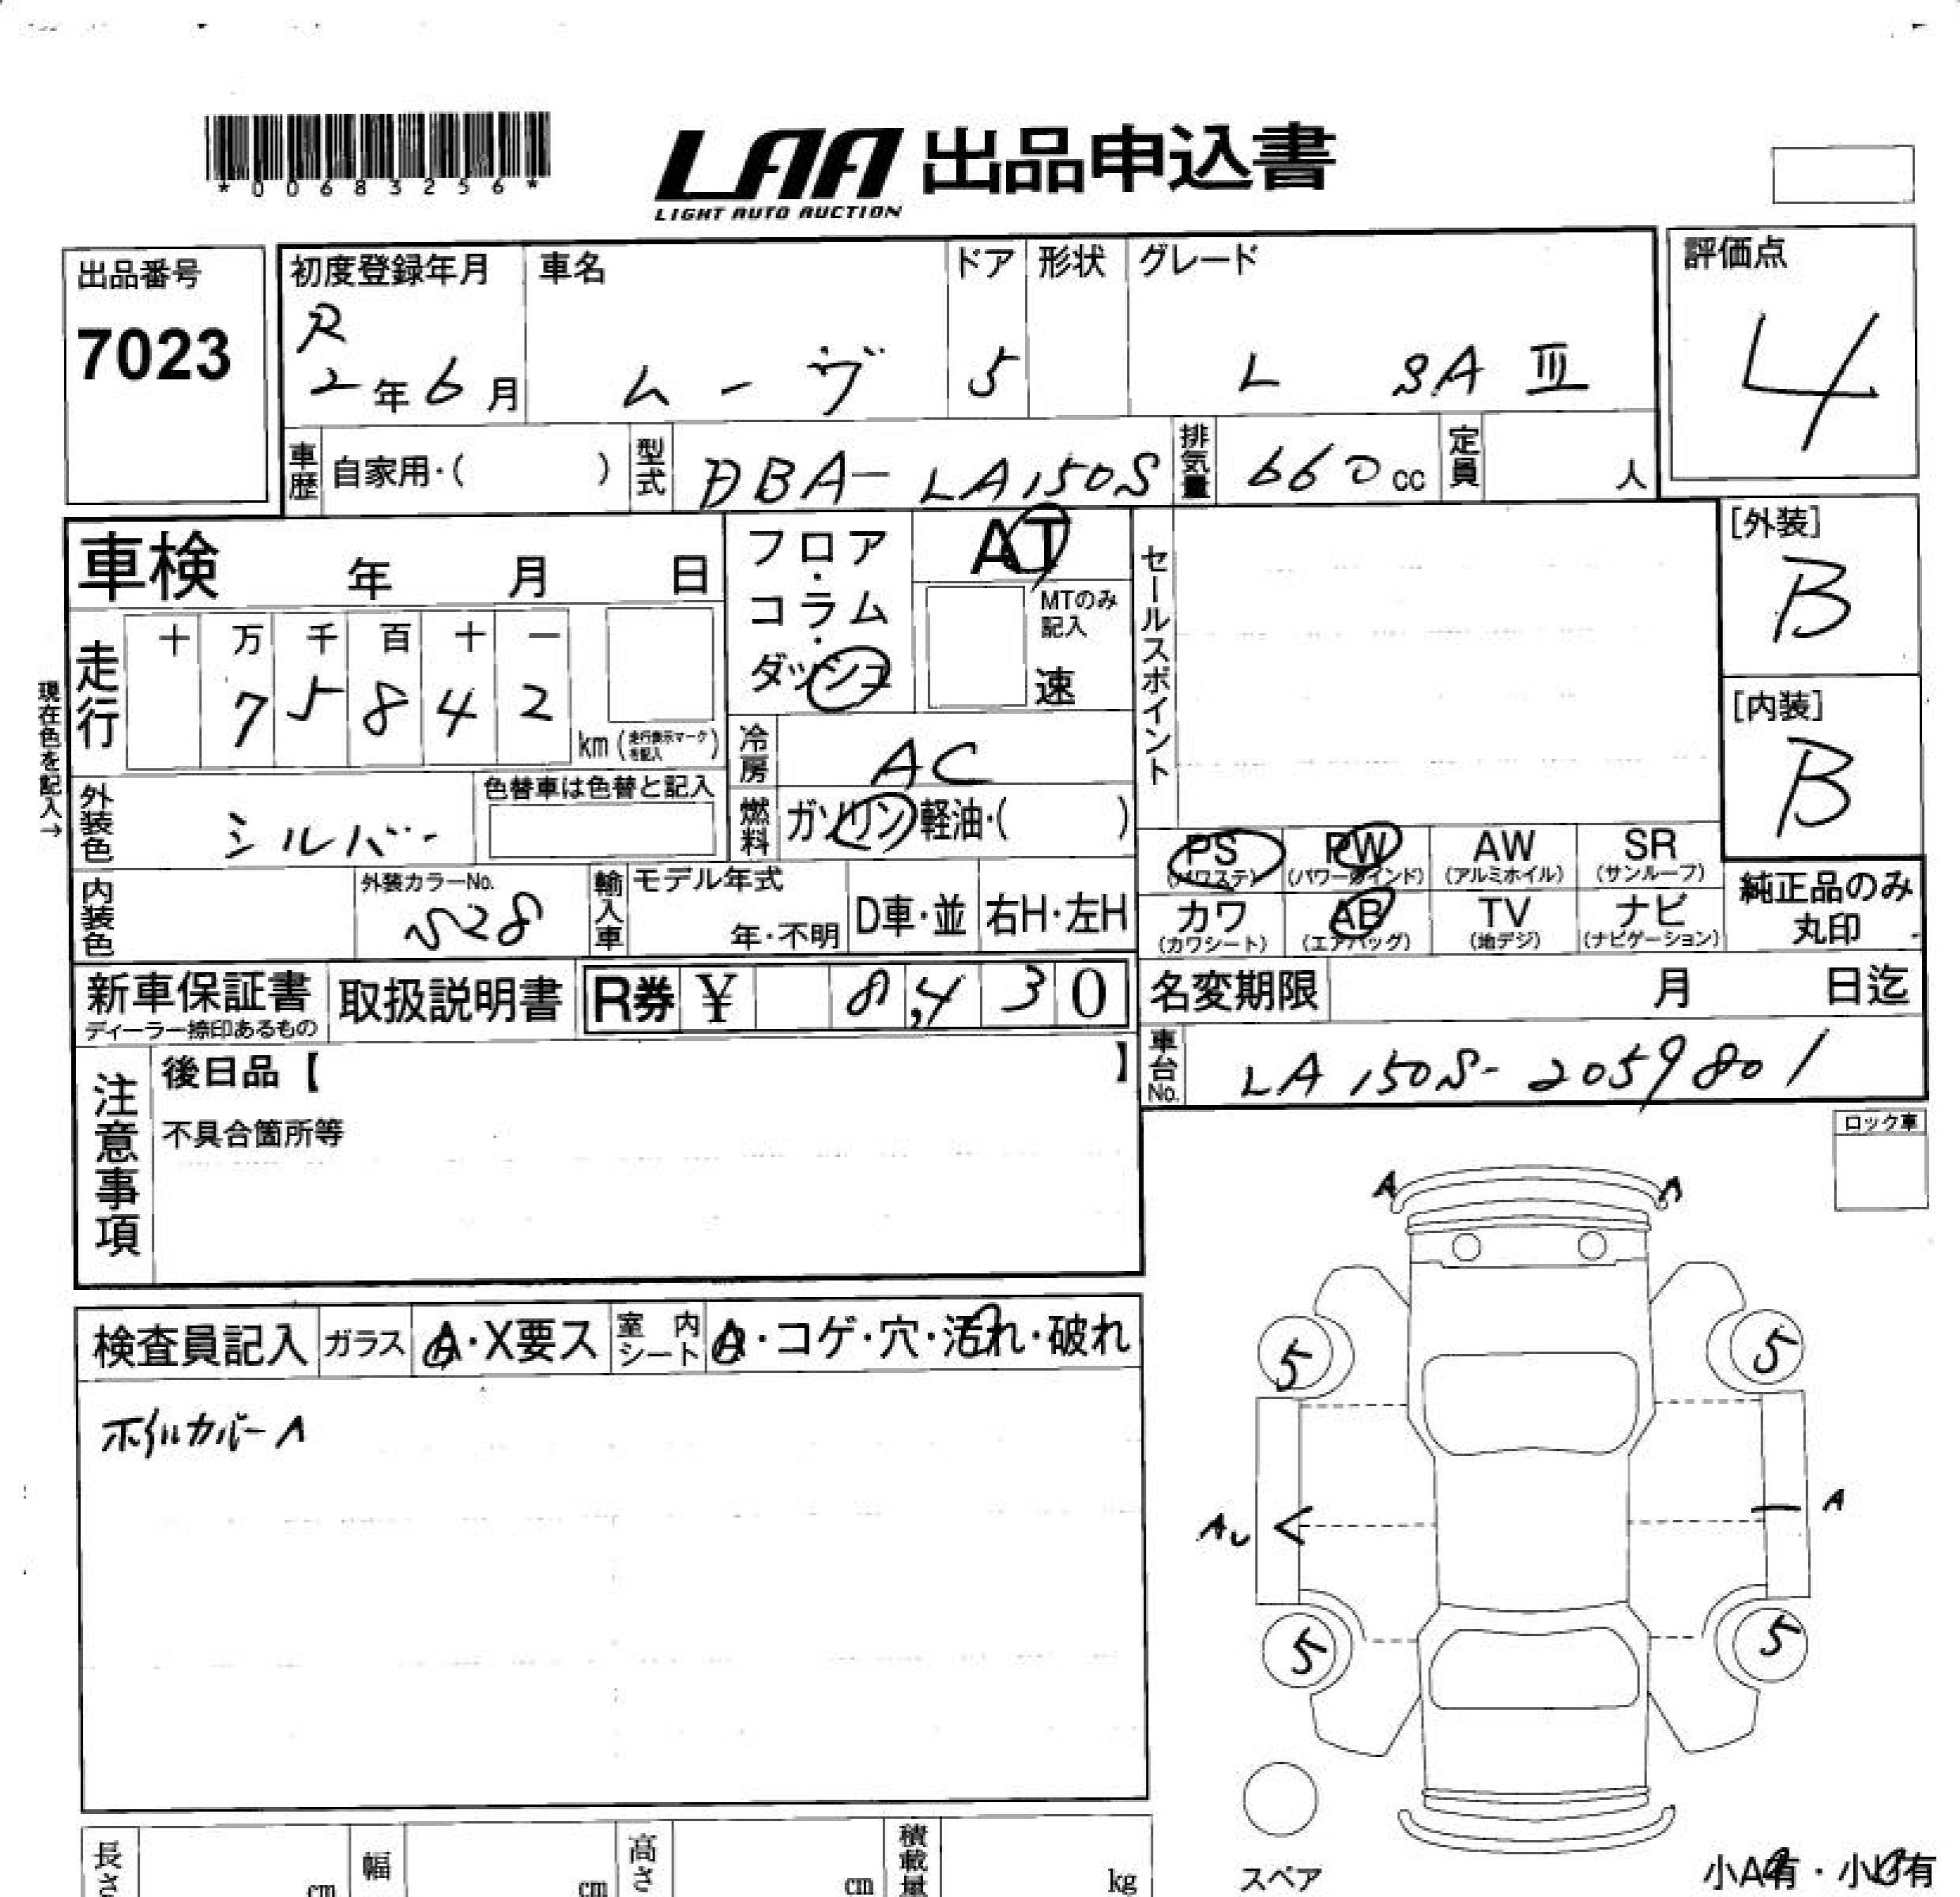 *00683256*
LAA 出品申込書
LIGHT AUTO AUCTION
出品番号
7023
初度登録年月
R
2年6月
車名
ムーヴ
ドア
5
形状
グレード
L SAⅢ
評価点
4
車歴
自家用・( )
型式
DBA-LA150S
排気量
660cc
定員
人
車検 年 月 日
フロア・コラム・ダッシュ
AT
MTのみ記入
速
セールスポイント
[外装]
B
[内装]
B
現在色を記入→
走行
十 万 千 百 十 一
7 5 8 4 2
km(走行表示マークを記入)
冷房
AC
外装色
シルバー
色替車は色替と記入
燃料
ガソリン・軽油・( )
PS
(パワステ)
PW
(パワーウインド)
AW
(アルミホイル)
SR
(サンルーフ)
カワ
(カワシート)
AB
(エアバッグ)
TV
(地デジ)
ナビ
(ナビゲーション)
純正品のみ
丸印
内装色
外装カラーNo.
S28
輸入車
モデル年式
年・不明
D車・並
右H・左H
新車保証書
ディーラー捺印あるもの
取扱説明書
R券 ¥ 8,430
名変期限 月 日迄
車台No.
LA150S-2059801
注意事項
後日品【 】
不具合箇所等
ロック車
検査員記入
ガラス
A・X要ス
室内シート
A・コゲ・穴・汚れ・破れ
ホイルカバーA
A
A
5
5
AU
A
5
5
スペア
小A有・小U有
長さ
cm
幅
cm
高さ
cm
積載量
kg